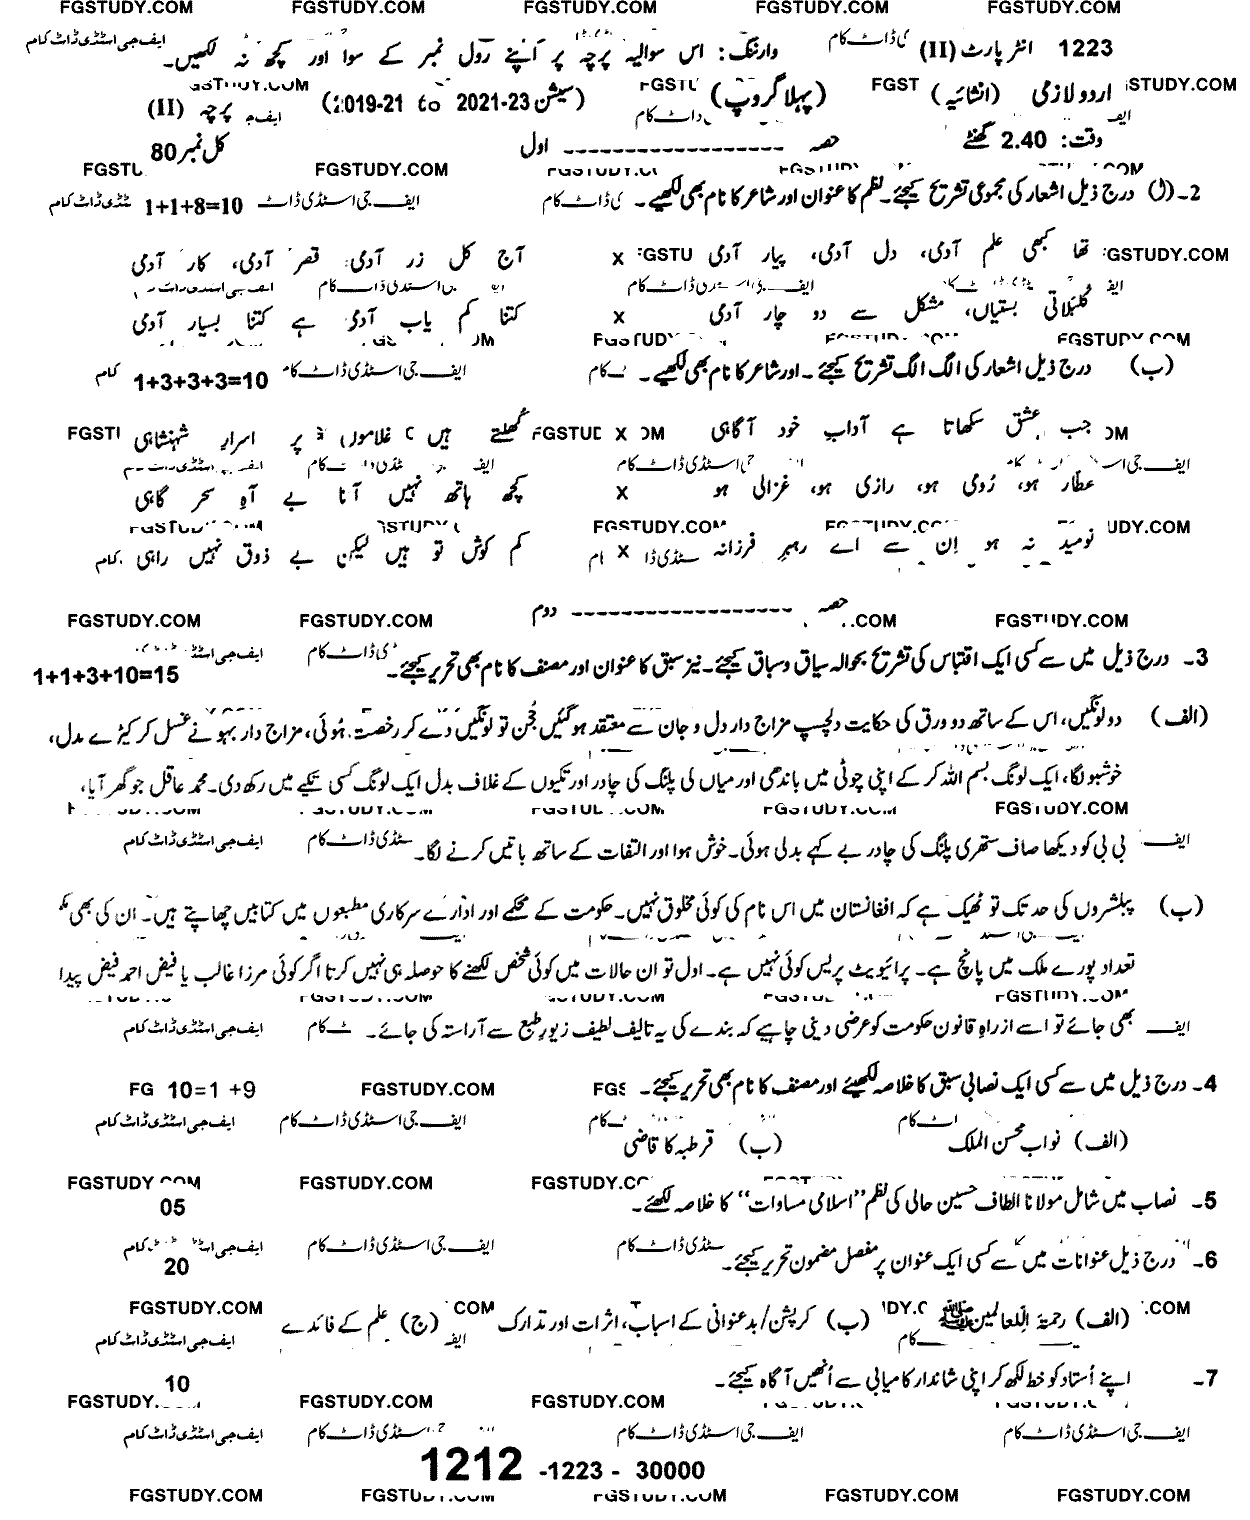 FGSTUDY.COM FGSTUDY.COM FGSTUDY.COM FGSTUDY.COM FGSTUDY.COM
1223 انٹر پارٹ (II) وارننگ: اس سوالیہ پرچہ پر اپنے رول نمبر کے سوا اور کچھ نہ لکھیں۔ ایف جی اسٹڈی ڈاٹ کام
اردو لازمی (انشائیہ) (پہلا گروپ) (سیشن 2021-23 to 2019-21) پرچہ (II)
وقت: 2.40 گھنٹے حصہ ------------------ اول کل نمبر 80
FGSTUDY.COM
2۔ (ا) درج ذیل اشعار کی مجموعی تشریح کیجئے۔ نظم کا عنوان اور شاعر کا نام بھی لکھیے۔ 1+1+8=10
تھا کبھی علم آدمی، دل آدمی، پیار آدمی x آج کل زر آدمی، قصر آدمی، کار آدمی
کلبلاتی بستیاں، مشکل سے دو چار آدمی x کتنا کم یاب آدمی ہے کتنا بسیار آدمی
(ب) درج ذیل اشعار کی الگ الگ تشریح کیجئے۔ اور شاعر کا نام بھی لکھیے۔ 1+3+3+3=10
جب عشق سکھاتا ہے آداب خود آگاہی x کھلتے ہیں غلاموں پر اسرار شہنشاہی
عطار ہو، رومی ہو، رازی ہو، غزالی ہو x کچھ ہاتھ نہیں آتا بے آہ سحر گاہی
نومید نہ ہو ان سے اے رہبر فرزانہ x کم کوش تو ہیں لیکن بے ذوق نہیں راہی
حصہ ------------------ دوم
FGSTUDY.COM FGSTUDY.COM
3۔ درج ذیل میں سے کسی ایک اقتباس کی تشریح بحوالہ سیاق و سباق کیجئے۔ نیز سبق کا عنوان اور مصنف کا نام بھی تحریر کیجئے۔ 1+1+3+10=15
(الف) دو لونگیں، اس کے ساتھ دو ورق کی حکایت دلچسپ مزاج دار دل و جان سے معتقد ہو گئیں حُجّن تو لونگیں دے کر رخصت ہُوئی، مزاج دار بہو نے غسل کر کپڑے بدل،
خوشبو لگا، ایک لونگ بسم اللہ کر کے اپنی چوٹی میں باندھی اور میاں کی پلنگ کی چادر اور تکیوں کے غلاف بدل ایک لونگ کسی تکیے میں رکھ دی۔ محمد عاقل جو گھر آیا،
بی بی کو دیکھا صاف ستھری پلنگ کی چادر بے کہے بدلی ہوئی۔ خوش ہوا اور التفات کے ساتھ باتیں کرنے لگا۔
(ب) پبلشروں کی حد تک تو ٹھیک ہے کہ افغانستان میں اس نام کی کوئی مخلوق نہیں۔ حکومت کے محکمے اور ادارے سرکاری مطبعوں میں کتابیں چھاپتے ہیں۔ ان کی بھی
تعداد پورے ملک میں پانچ ہے۔ پرائیویٹ پریس کوئی نہیں ہے۔ اول تو ان حالات میں کوئی شخص لکھنے کا حوصلہ ہی نہیں کرتا اگر کوئی مرزا غالب یا فیض احمد فیض پیدا
بھی جائے تو اسے از راہِ قانون حکومت کو عرضی دینی چاہیے کہ بندے کی یہ تالیف لطیف زیور طبع سے آراستہ کی جائے۔
4۔ درج ذیل میں سے کسی ایک نصابی سبق کا خلاصہ لکھیئے اور مصنف کا نام بھی تحریر کیجئے۔ FGSTUDY.COM 10=1 +9
(الف) نواب محسن الملک (ب) قرطبہ کا قاضی
5۔ نصاب میں شامل مولانا الطاف حسین حالی کی نظم "اسلامی مساوات" کا خلاصہ لکھئے۔ 05
6۔ درج ذیل عنوانات میں سے کسی ایک عنوان پر مفصل مضمون تحریر کیجئے۔ 20
(الف) رحمۃ اللعالمین ﷺ (ب) کرپشن/بدعنوانی کے اسباب، اثرات اور تدارک (ج) علم کے فائدے
7۔ اپنے اُستاد کو خط لکھ کر اپنی شاندار کامیابی سے اُنھیں آگاہ کیجئے۔ 10
FGSTUDY.COM FGSTUDY.COM
ایف جی اسٹڈی ڈاٹ کام ایف جی اسٹڈی ڈاٹ کام ایف جی اسٹڈی ڈاٹ کام
1212 -1223 - 30000
FGSTUDY.COM FGSTUDY.COM FGSTUDY.COM FGSTUDY.COM FGSTUDY.COM